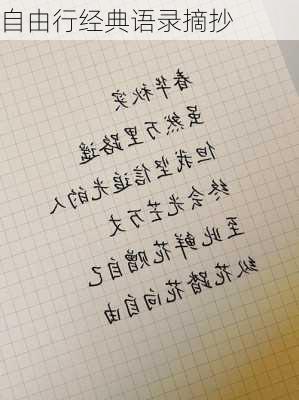 自由行经典语录摘抄
春华秋实
虽然万里路遥
但我坚信追光的人
终会光芒万丈
至此鲜花赠自己
纵花踏花向自由